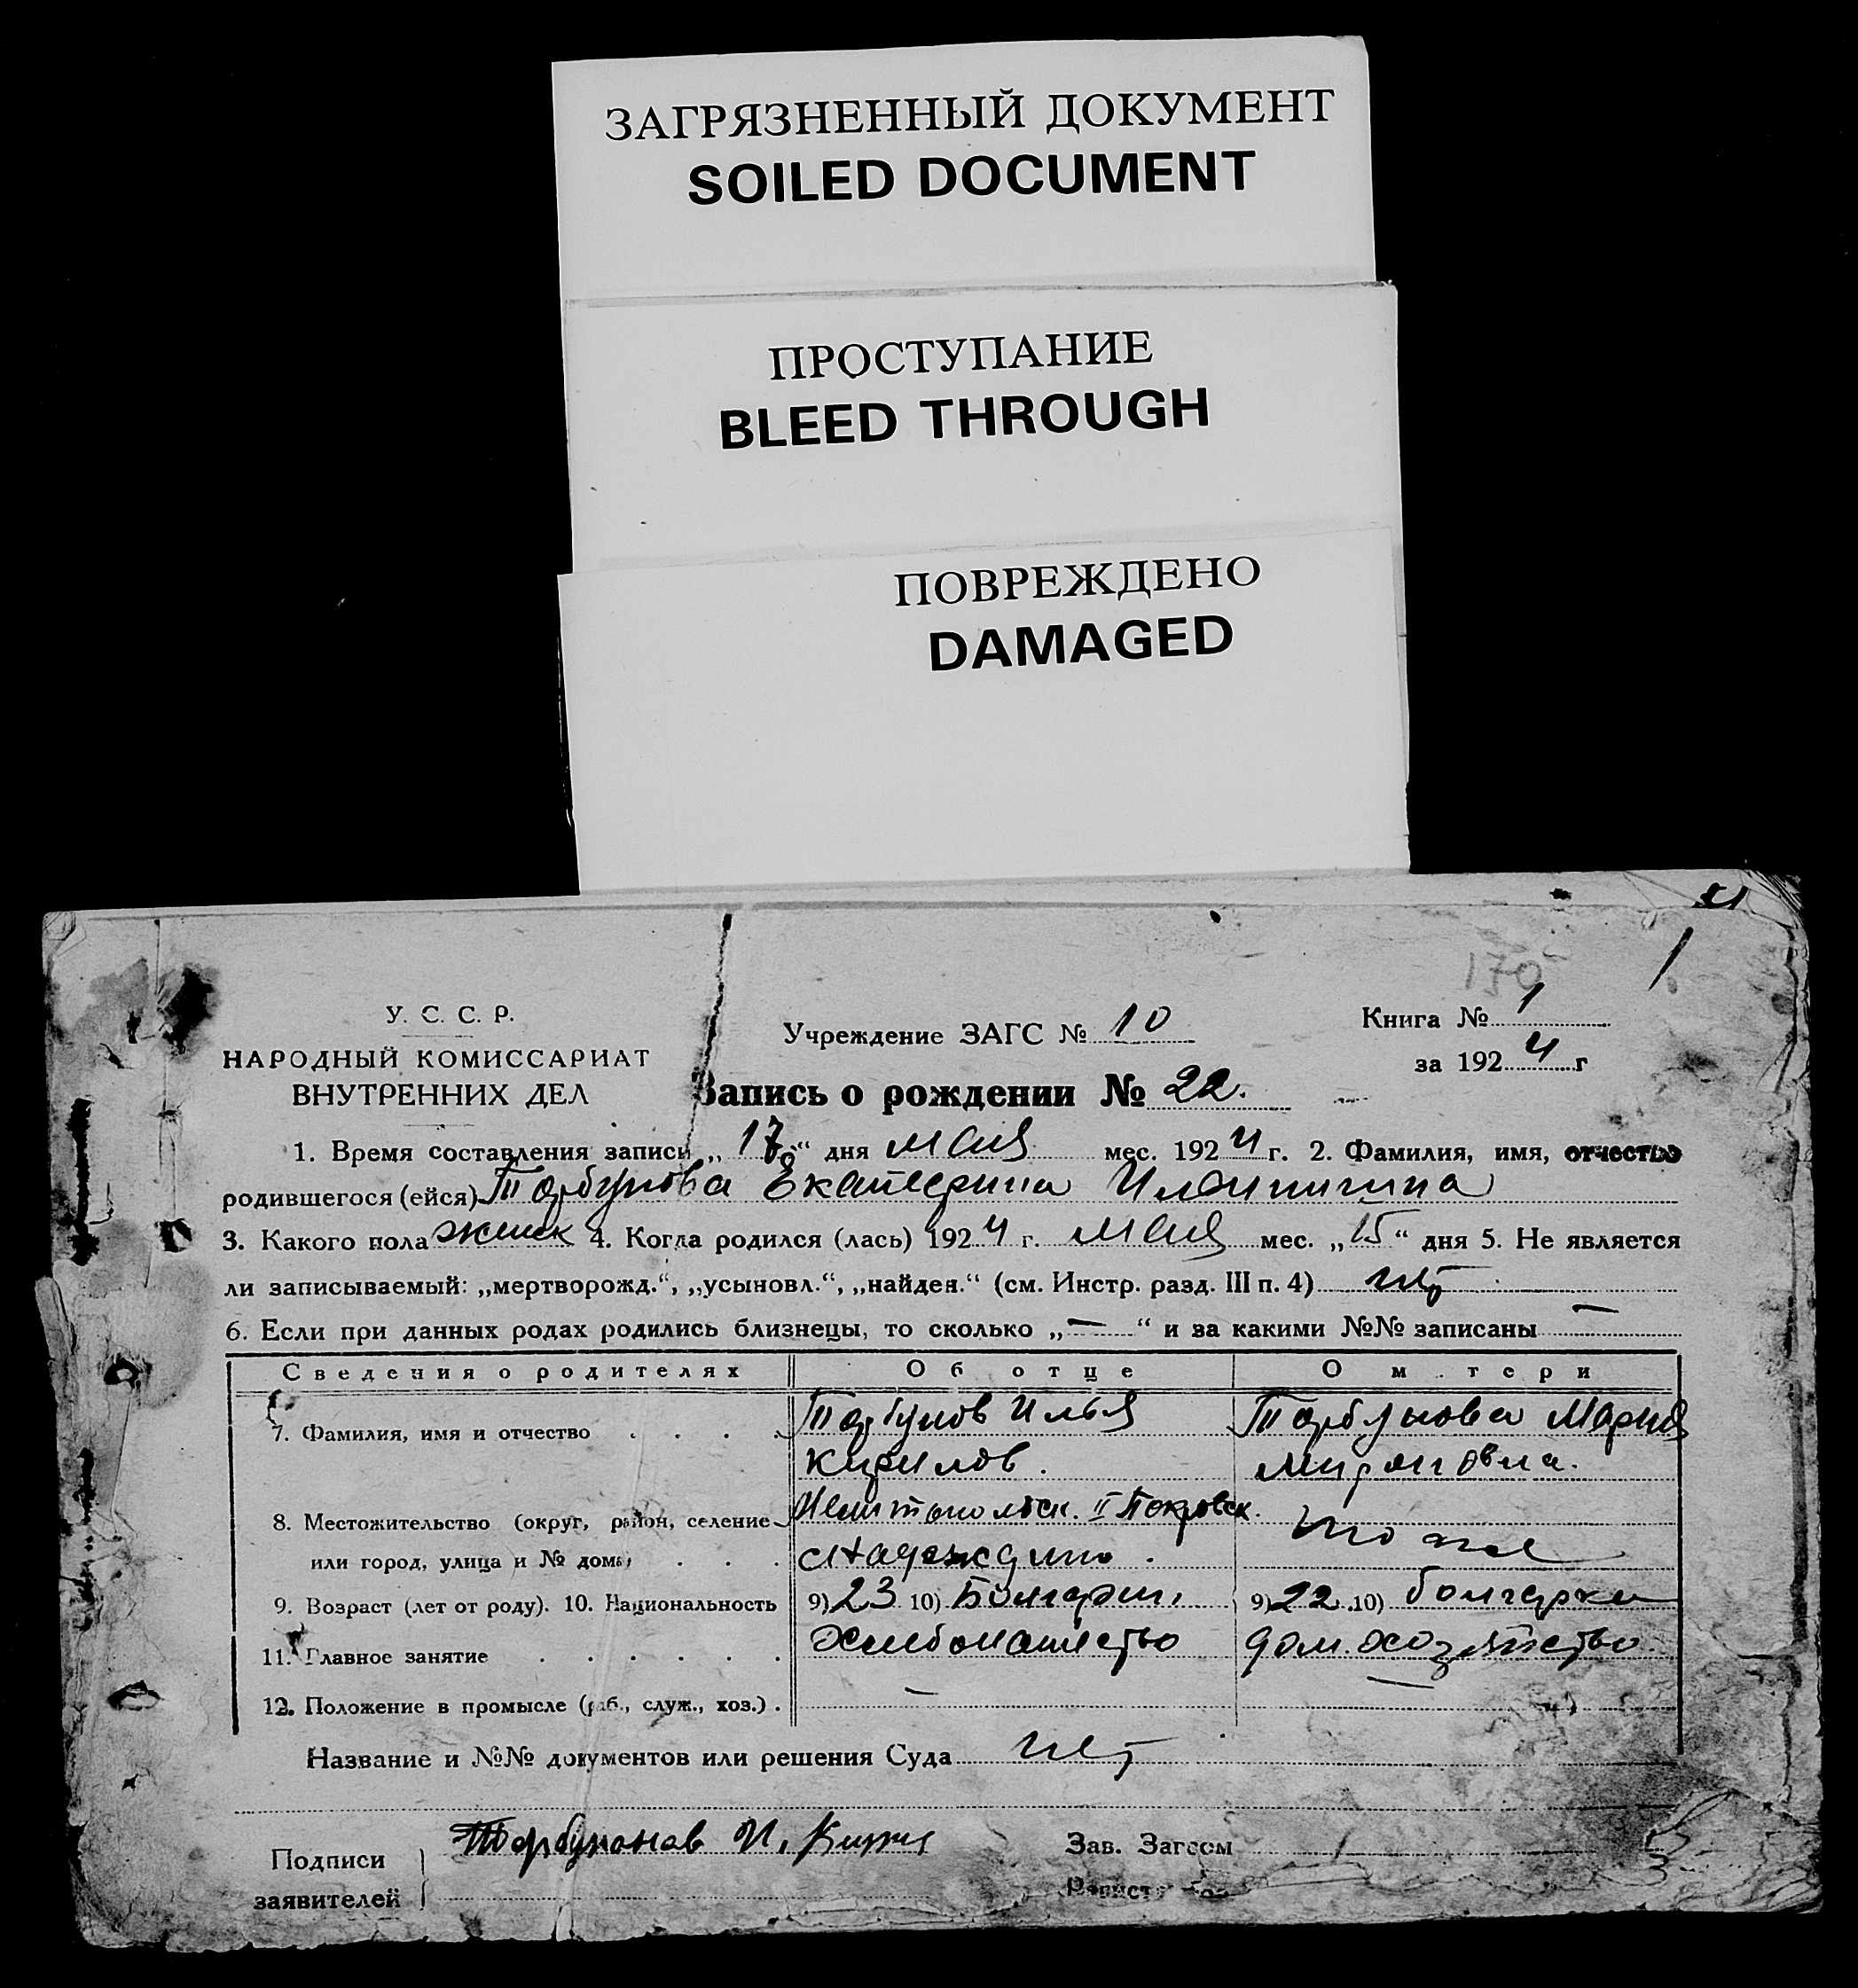 ЗАГРЯЗНЕННЫЙ ДОКУМЕНТ
SOILED DOCUMENT
ПРОСТУПАНИЕ
BLEED THROUGH
ПОВРЕЖДЕНО
DAMAGED
170 1
У. С. С. Р.
НАРОДНЫЙ КОМИССАРИАТ
ВНУТРЕННИХ ДЕЛ
Учреждение ЗАГС № 10
Книга № 1
за 1924 г
Запись о рождении № 22.
1. Время составления записи „17“ дня мая мес. 1924 г. 2. Фамилия, имя, отчество
родившегося (ейся) Екатерина
3. Какого пола женск 4. Когда родился (лась) 1924 г. мая мес. „15“ дня 5. Не является
ли записываемый: „мертворожд.“, „усыновл.“, „найден.“ (см. Инстр. разд. III п. 4) нет
6. Если при данных родах родились близнецы, то сколько „—“ и за какими №№ записаны —
Сведения о родителях Об отце О м тери
7. Фамилия, имя и отчество . . . . Илья Мария
Кирилов. Мироновна.
8. Местожительство (округ, район, селение Мелитопольск. II Покровск.
или город, улица и № дома) . . . Надеждино. то же
9. Возраст (лет от роду). 10. Национальность 9) 23 10) Болгарин 9) 22 10) болгарка
11. Главное занятие . . . . . . Хлебопашество дом. хозяйство.
12. Положение в промысле (раб., служ., хоз.) . — —
Название и №№ документов или решения Суда нет
Подписи
заявителей
И.
Зав. Загсом